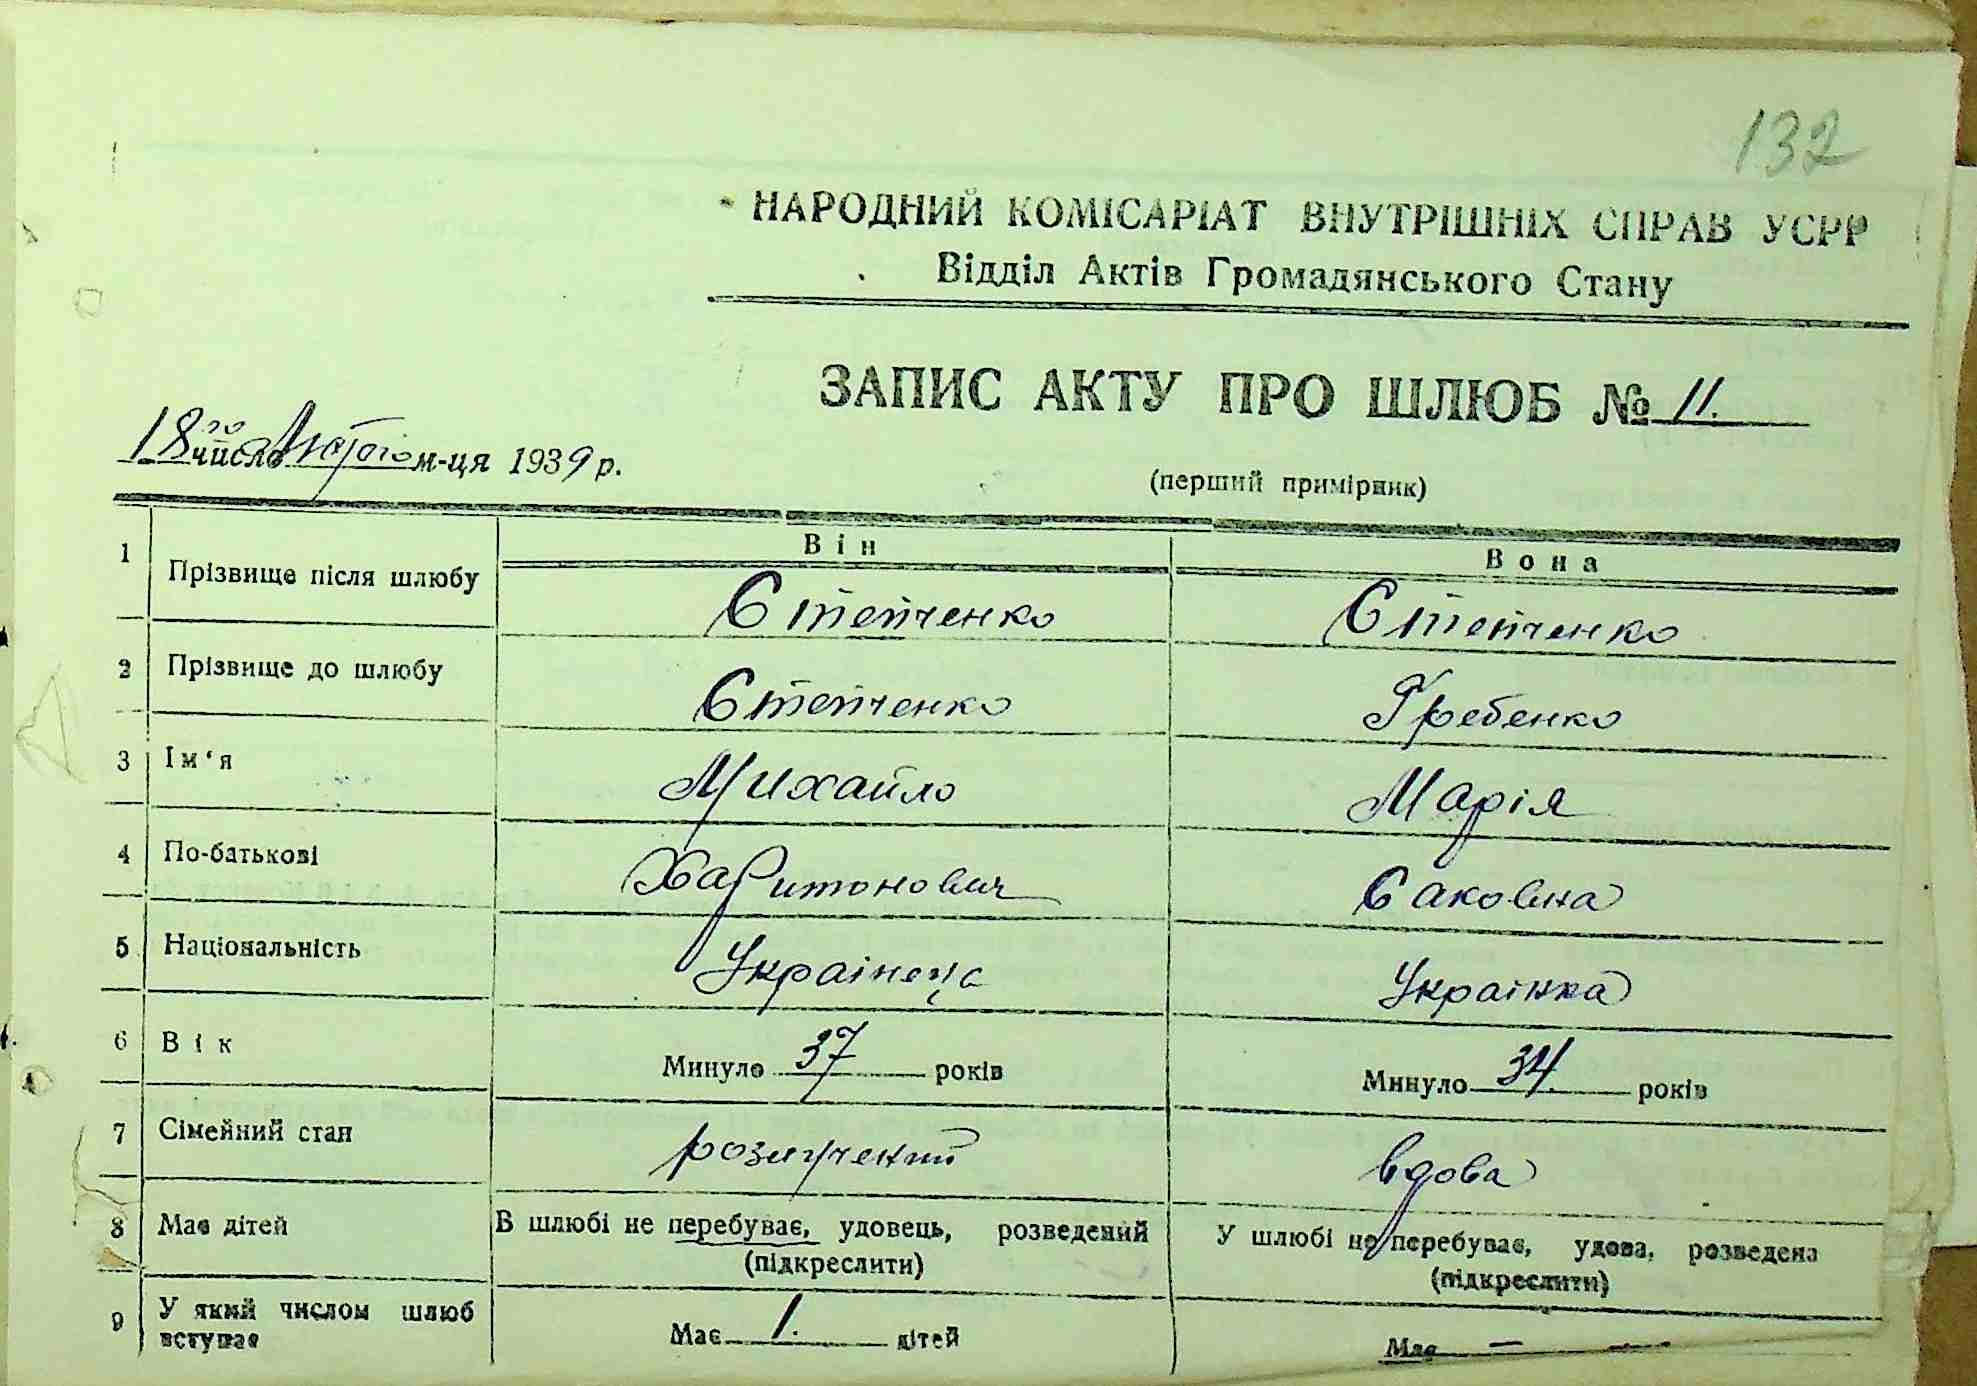 132
НАРОДНИЙ КОМІСАРІАТ ВНУТРІШНІХ СПРАВ УСРР
Відділ Актів Громадянського Стану
ЗАПИС АКТУ ПРО ШЛЮБ № 11.
18го число Лютого м-ця 1939 р.
(перший примірник)
Він Вона
1 Прізвище після шлюбу Степченко Степченко
2 Прізвище до шлюбу Степченко Гребенко
3 Ім'я Михайло Марія
4 По-батькові Харитонович Саковна
5 Національність Украінець Украінка
6 Вік Минуло 37 років Минуло 34 років
7 Сімейний стан розлучений вдова
8 Має дітей В шлюбі не перебуває, удовець, розведений У шлюбі не перебуває, удова, розведена
(підкреслити) (підкреслити)
9 У який числом шлюб вступає Має 1. дітей Має —